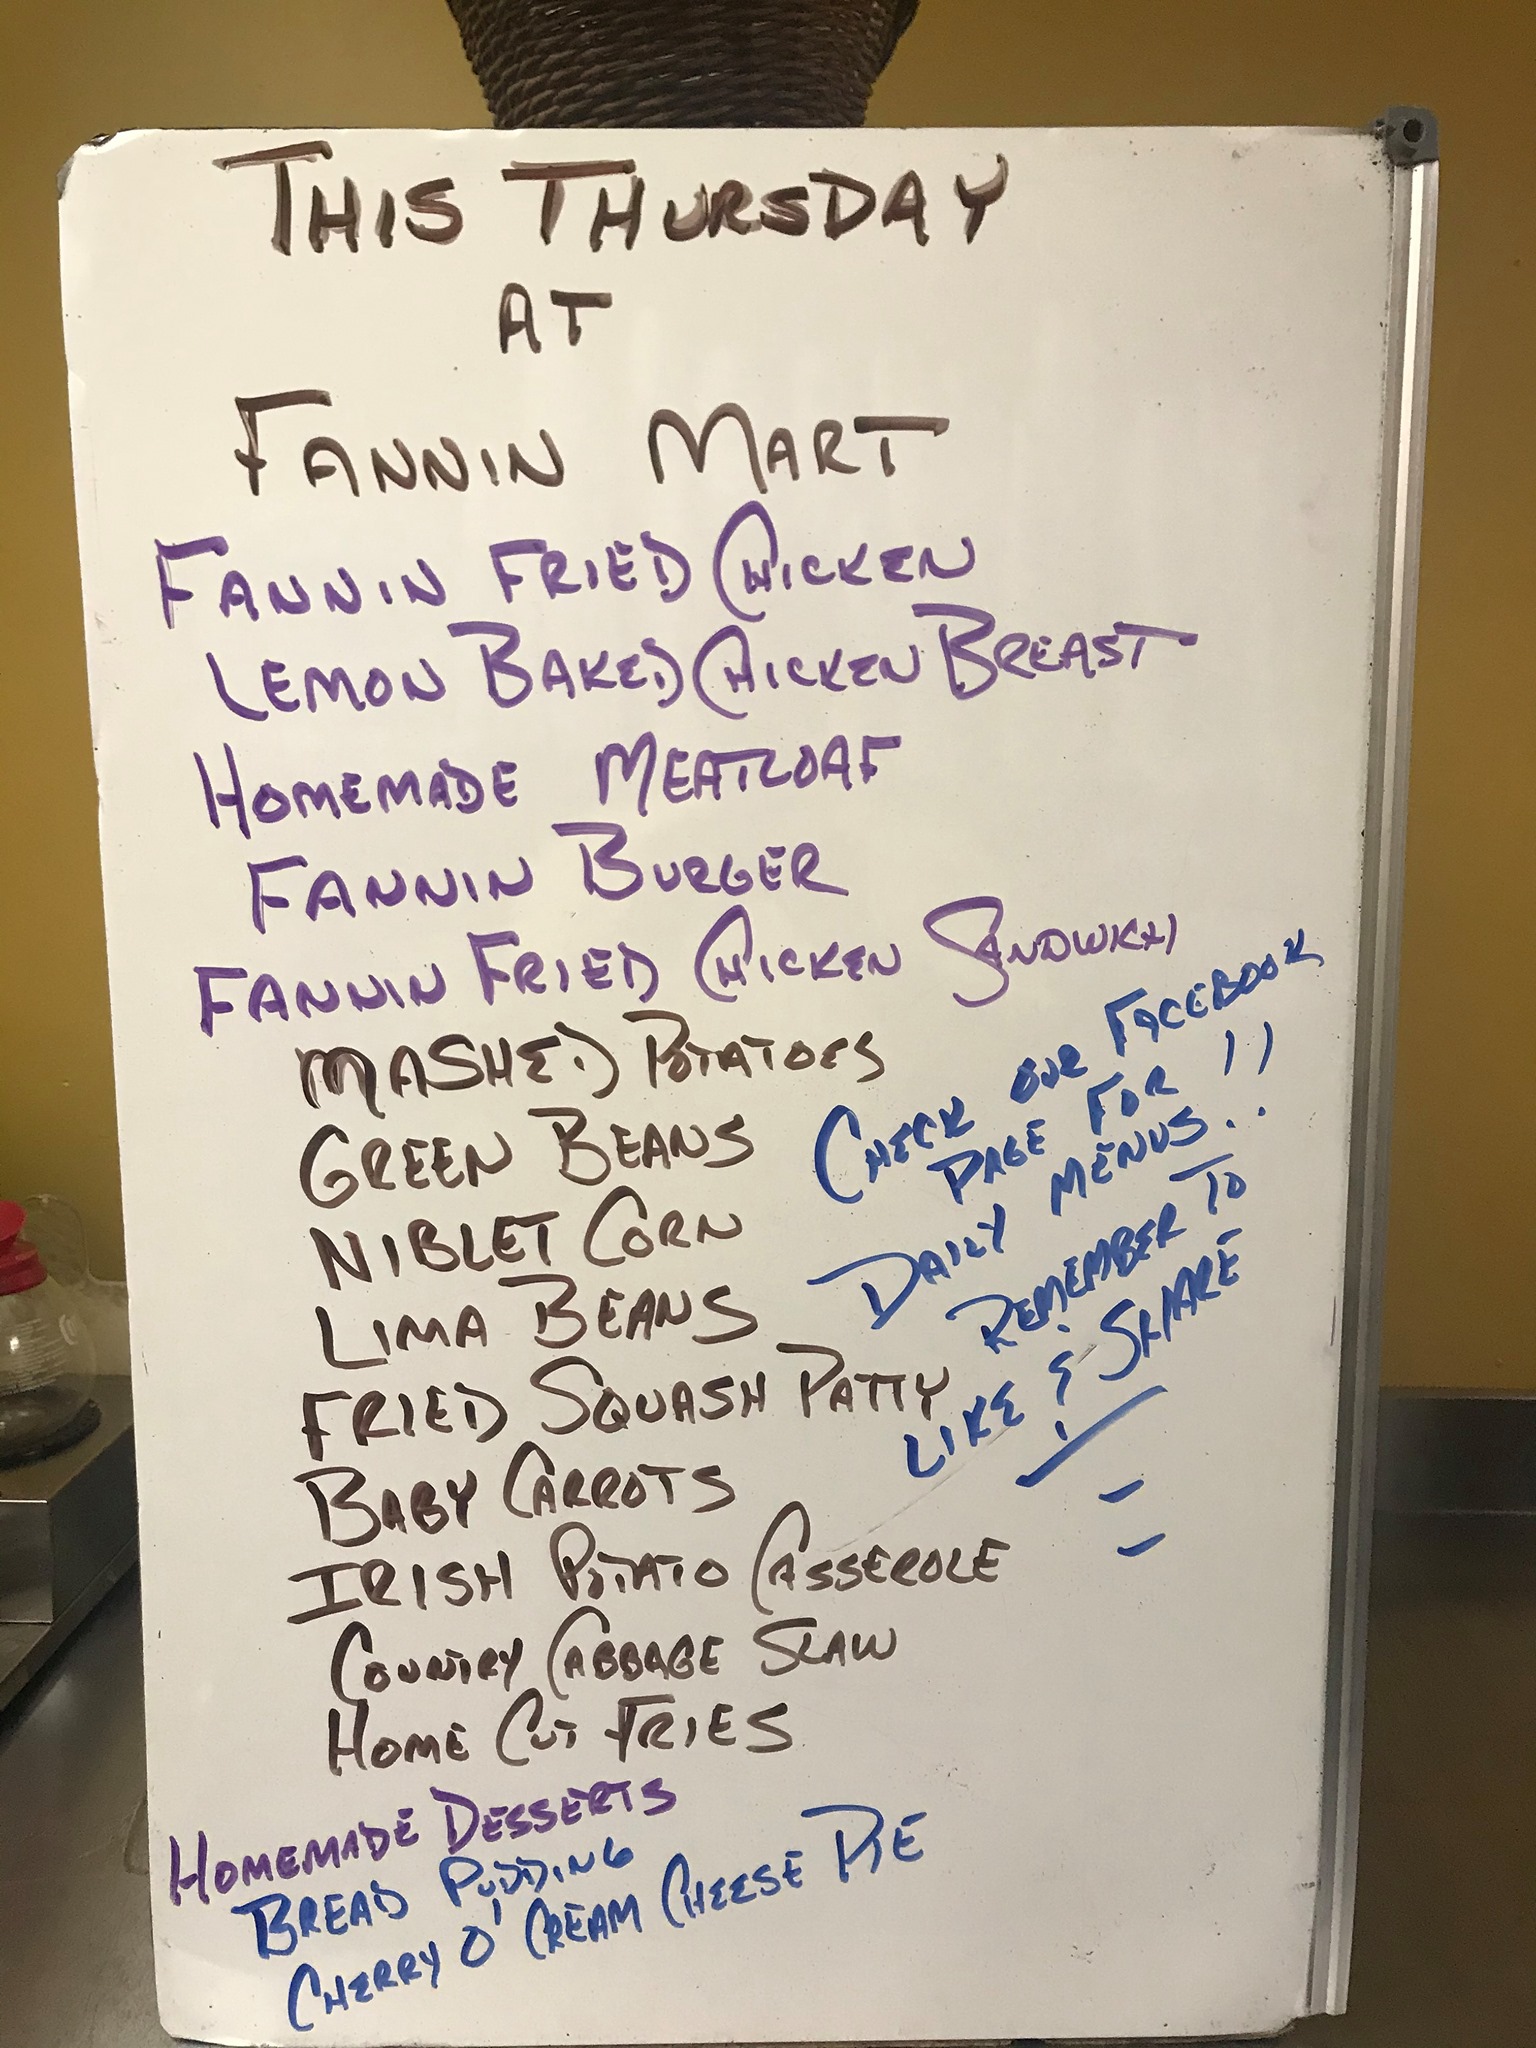 THIS THURSDAY
AT
FANNIN MART
FANNIN FRIED CHICKEN
LEMON BAKED CHICKEN BREAST
HOMEMADE MEATLOAF
FANNIN BURGER
FANNIN FRIED CHICKEN SANDWICH
MASHED POTATOES
GREEN BEANS
NIBLET CORN
LIMA BEANS
FRIED SQUASH PATTY
BABY CARROTS
IRISH POTATO CASSEROLE
COUNTRY CABBAGE SLAW
HOME CUT FRIES
CHECK OUR FACEBOOK
PAGE FOR
DAILY MENUS..!!
REMEMBER TO
LIKE & SHARE
HOMEMADE DESSERTS
BREAD PUDDING
CHERRY O' CREAM CHEESE PIE